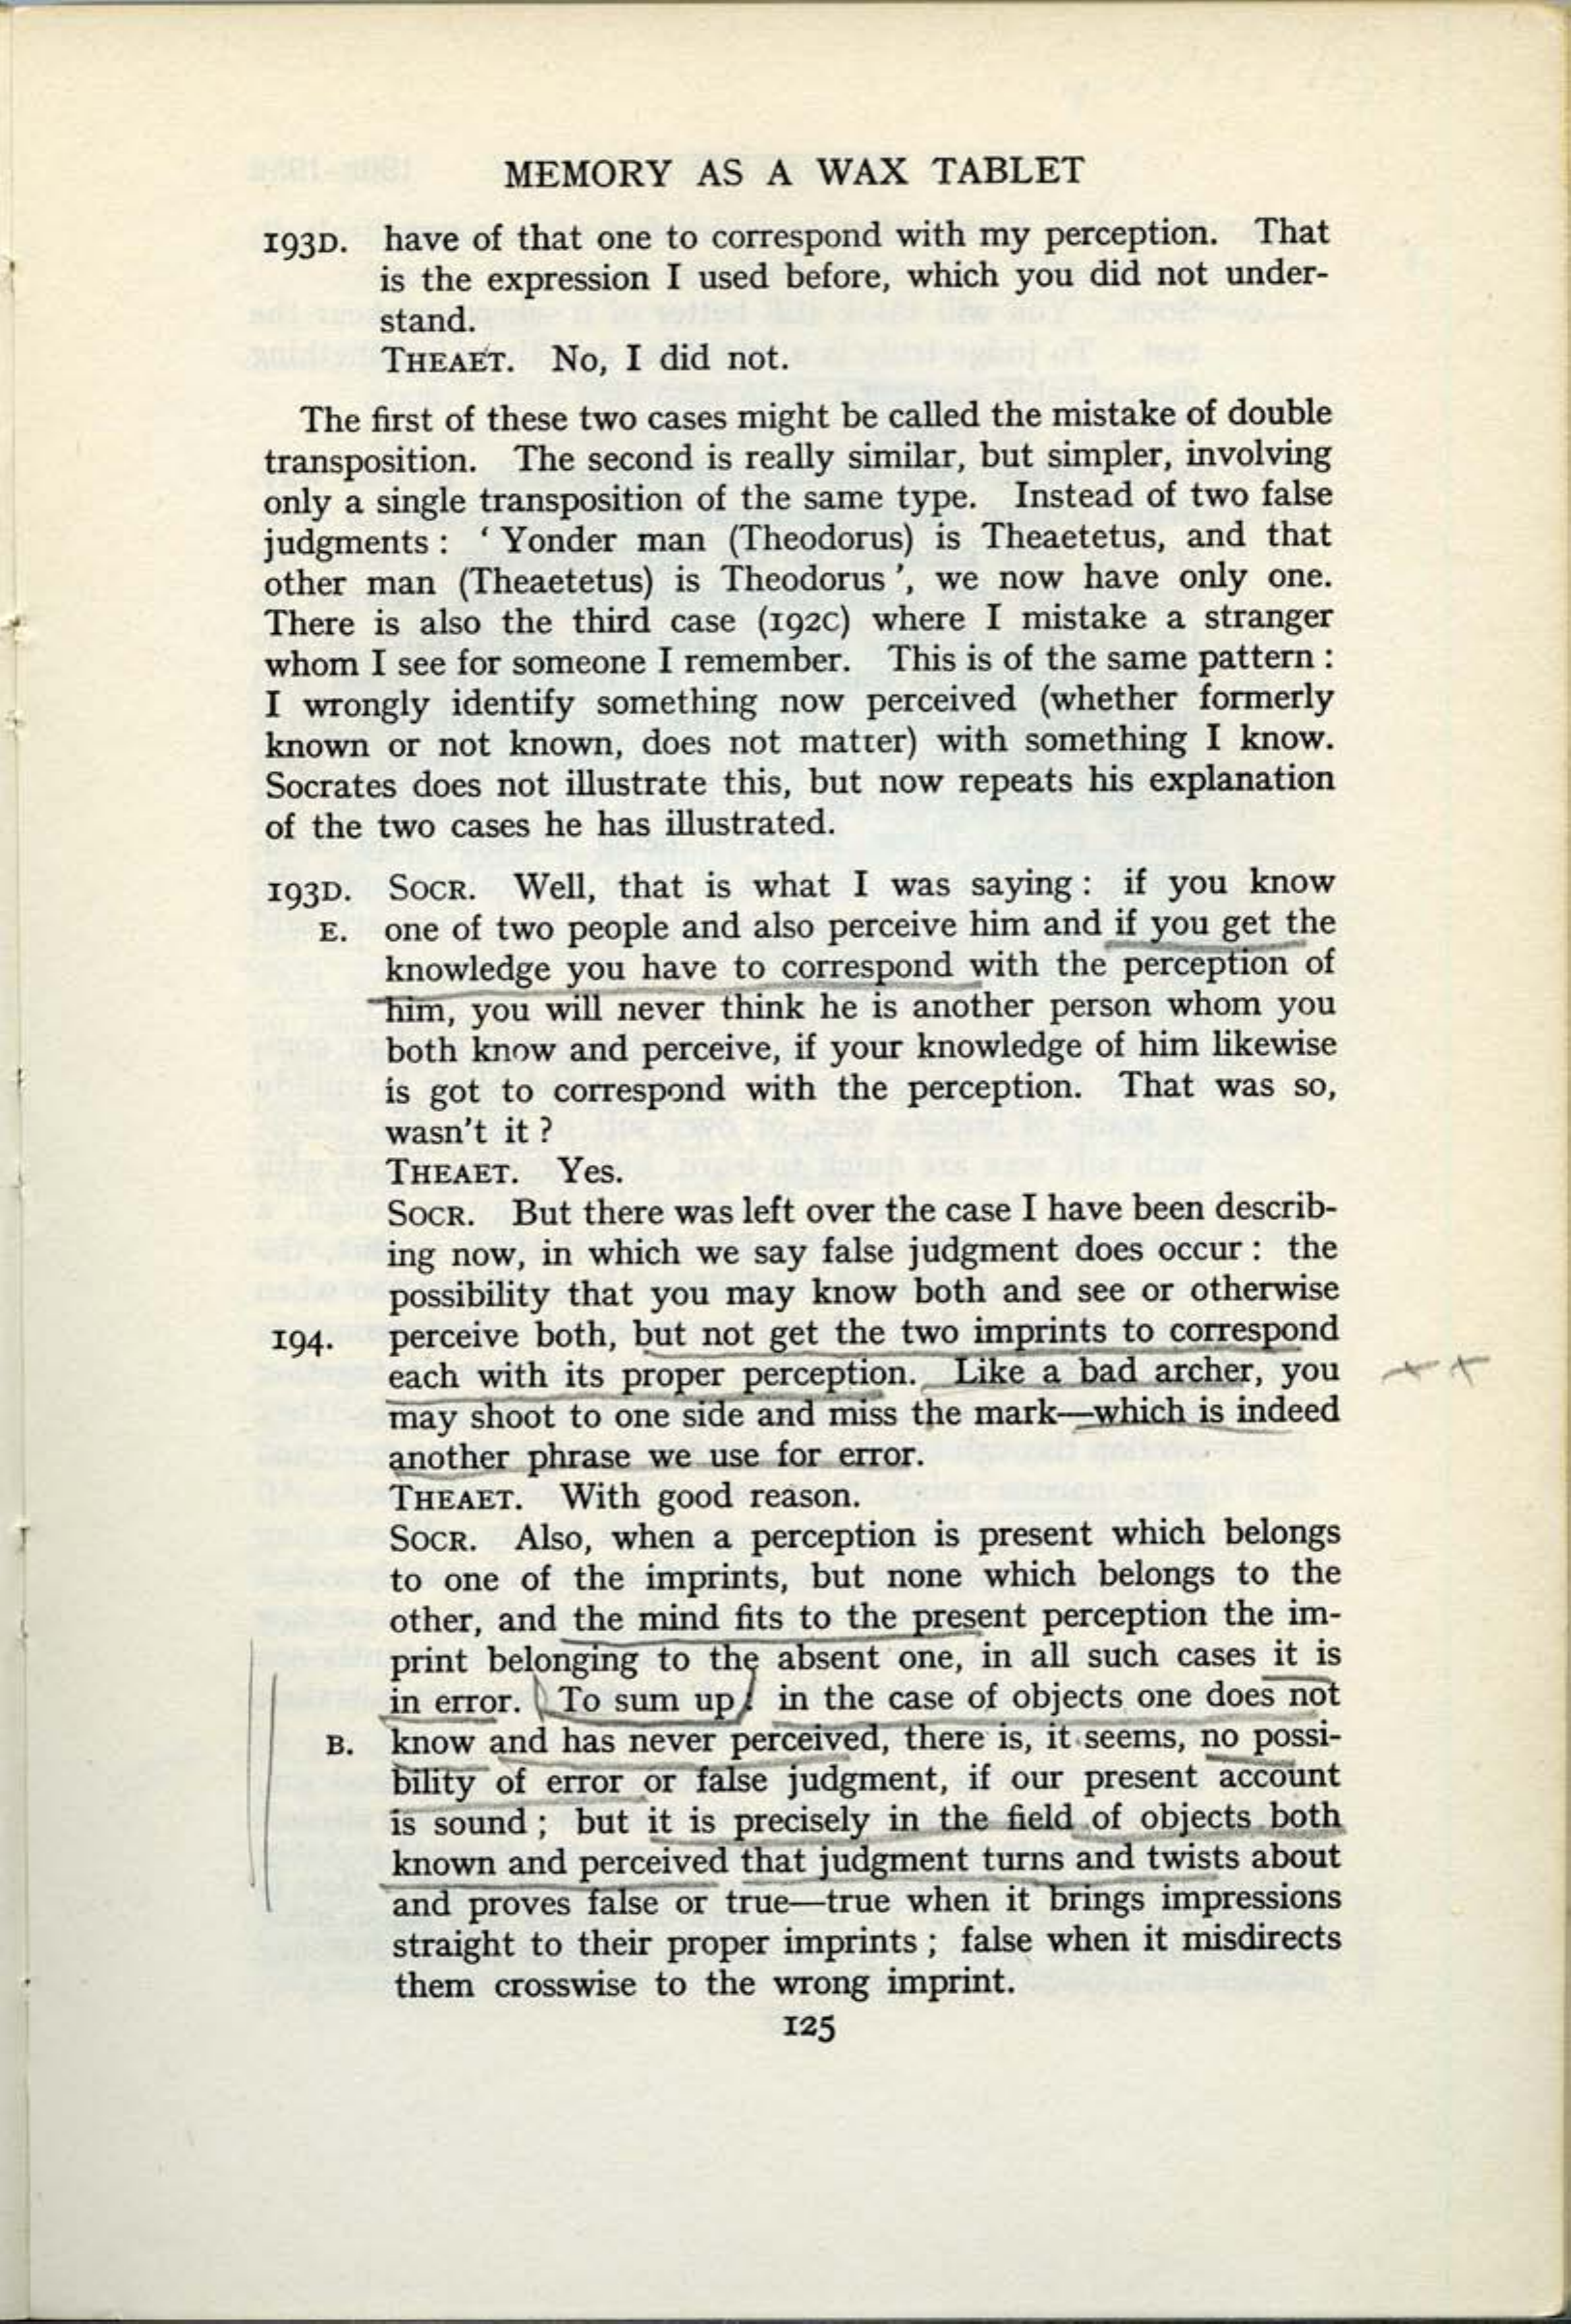 MEMORY AS A WAX TABLET
193D. have of that one to correspond with my perception. That
is the expression I used before, which you did not under-
stand.
THEAET. No, I did not.
The first of these two cases might be called the mistake of double
transposition. The second is really similar, but simpler, involving
only a single transposition of the same type. Instead of two false
judgments : ‘ Yonder man (Theodorus) is Theaetetus, and that
other man (Theaetetus) is Theodorus ’, we now have only one.
There is also the third case (192C) where I mistake a stranger
whom I see for someone I remember. This is of the same pattern :
I wrongly identify something now perceived (whether formerly
known or not known, does not matter) with something I know.
Socrates does not illustrate this, but now repeats his explanation
of the two cases he has illustrated.
193D. SOCR. Well, that is what I was saying : if you know
E. one of two people and also perceive him and if you get the
knowledge you have to correspond with the perception of
him, you will never think he is another person whom you
both know and perceive, if your knowledge of him likewise
is got to correspond with the perception. That was so,
wasn't it ?
THEAET. Yes.
SOCR. But there was left over the case I have been describ-
ing now, in which we say false judgment does occur : the
possibility that you may know both and see or otherwise
194. perceive both, but not get the two imprints to correspond
each with its proper perception. Like a bad archer, you
may shoot to one side and miss the mark—which is indeed
another phrase we use for error.
THEAET. With good reason.
SOCR. Also, when a perception is present which belongs
to one of the imprints, but none which belongs to the
other, and the mind fits to the present perception the im-
print belonging to the absent one, in all such cases it is
in error. To sum up: in the case of objects one does not
B. know and has never perceived, there is, it seems, no possi-
bility of error or false judgment, if our present account
is sound ; but it is precisely in the field of objects both
known and perceived that judgment turns and twists about
and proves false or true—true when it brings impressions
straight to their proper imprints ; false when it misdirects
them crosswise to the wrong imprint.
125